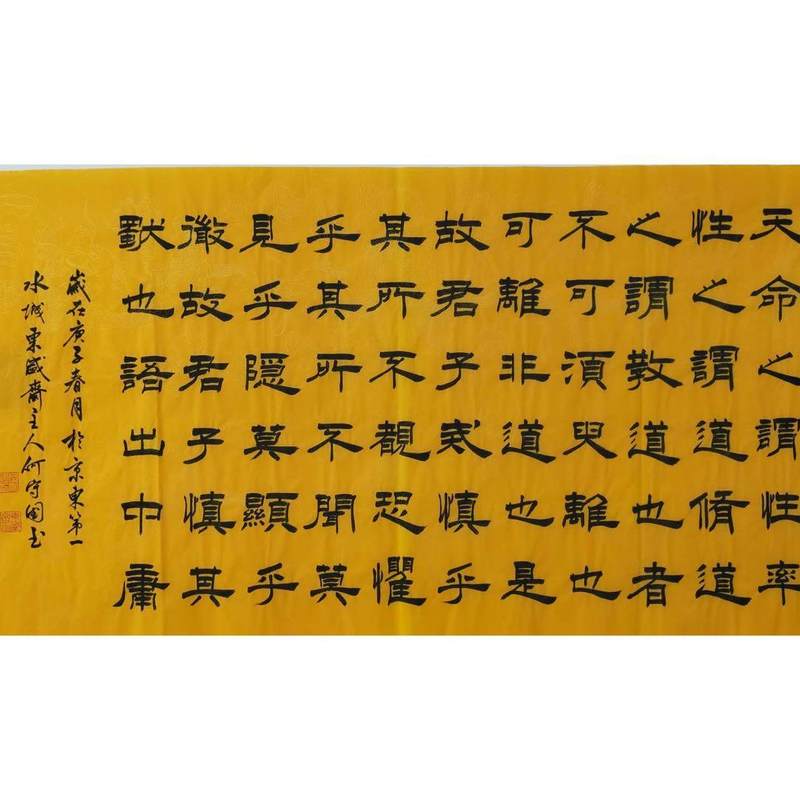 天命之謂性率
性之謂道脩道
之謂教道也者
不可須臾離也
可離非道也是
故君子戒慎乎
其所不覩恐懼
乎其所不聞莫
見乎隱莫顯乎
微故君子慎其
獨也語出中庸
歲在庚子春月於京東第一
水城齋主人何守國书